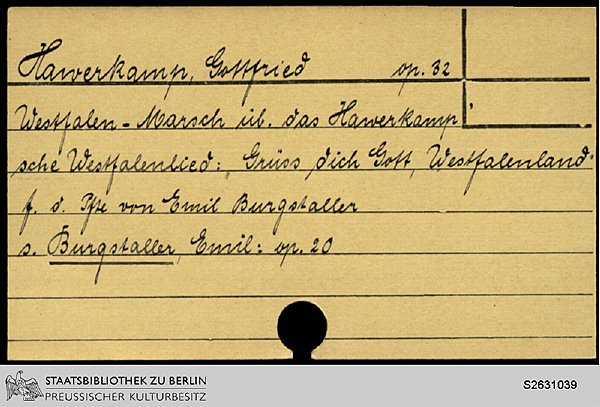 Hawerkamp, Gottfried op. 32
Westfalen-Marsch üb. das Hawerkamp'
sche Westfalenlied: "Grüss dich Gott, Westfalenland"
f. d. Pfte von Emil Burgstaller
s. Burgstaller, Emil: op. 20
STAATSBIBLIOTHEK ZU BERLIN
PREUSSISCHER KULTURBESITZ
S2631039